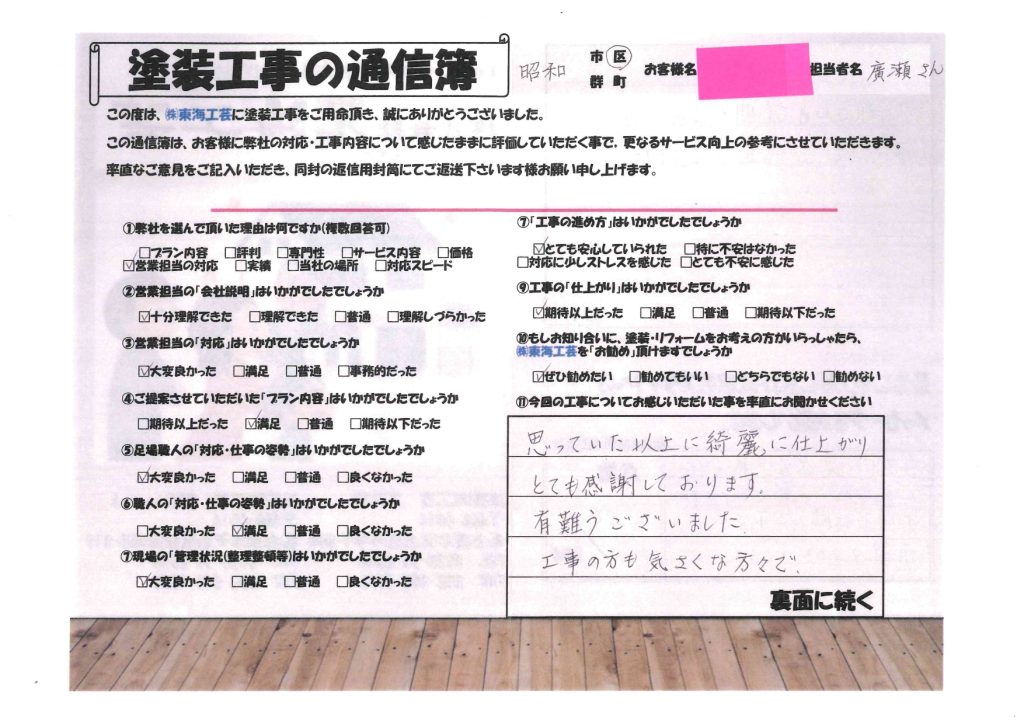 塗装工事の通信簿
昭和 市 区 群 町 お客様名 担当者名 廣瀬さん
この度は、㈱東海工芸に塗装工事をご用命頂き、誠にありがとうございました。
この通信簿は、お客様に弊社の対応・工事内容について感じたままに評価していただく事で、更なるサービス向上の参考にさせていただきます。
率直なご意見をご記入いただき、同封の返信用封筒にてご返送下さいます様お願い申し上げます。
①弊社を選んで頂いた理由は何ですか(複数回答可)
□プラン内容 □評判 □専門性 □サービス内容 □価格
☑営業担当の対応 □実績 □当社の場所 □対応スピード
②営業担当の「会社説明」はいかがでしたでしょうか
☑十分理解できた □理解できた □普通 □理解しづらかった
③営業担当の「対応」はいかがでしたでしょうか
☑大変良かった □満足 □普通 □事務的だった
④ご提案させていただいた「プラン内容」はいかがでしたでしょうか
□期待以上だった ☑満足 □普通 □期待以下だった
⑤足場職人の「対応・仕事の姿勢」はいかがでしたでしょうか
☑大変良かった □満足 □普通 □良くなかった
⑥職人の「対応・仕事の姿勢」はいかがでしたでしょうか
□大変良かった ☑満足 □普通 □良くなかった
⑦現場の「管理状況(整理整頓等)はいかがでしたでしょうか
☑大変良かった □満足 □普通 □良くなかった
⑦「工事の進め方」はいかがでしたでしょうか
☑とても安心していられた □特に不安はなかった
□対応に少しストレスを感じた □とても不安に感じた
⑨工事の「仕上がり」はいかがでしたでしょうか
☑期待以上だった □満足 □普通 □期待以下だった
⑩もしお知り合いに、塗装・リフォームをお考えの方がいらっしゃたら、
㈱東海工芸を「お勧め」頂けますでしょうか
☑ぜひ勧めたい □勧めてもいい □どちらでもない □勧めない
⑪今回の工事についてお感じいただいた事を率直にお聞かせください
思っていた以上に綺麗に仕上がり
とても感謝しております。
有難うございました
工事の方も気さくな方々で、
裏面に続く